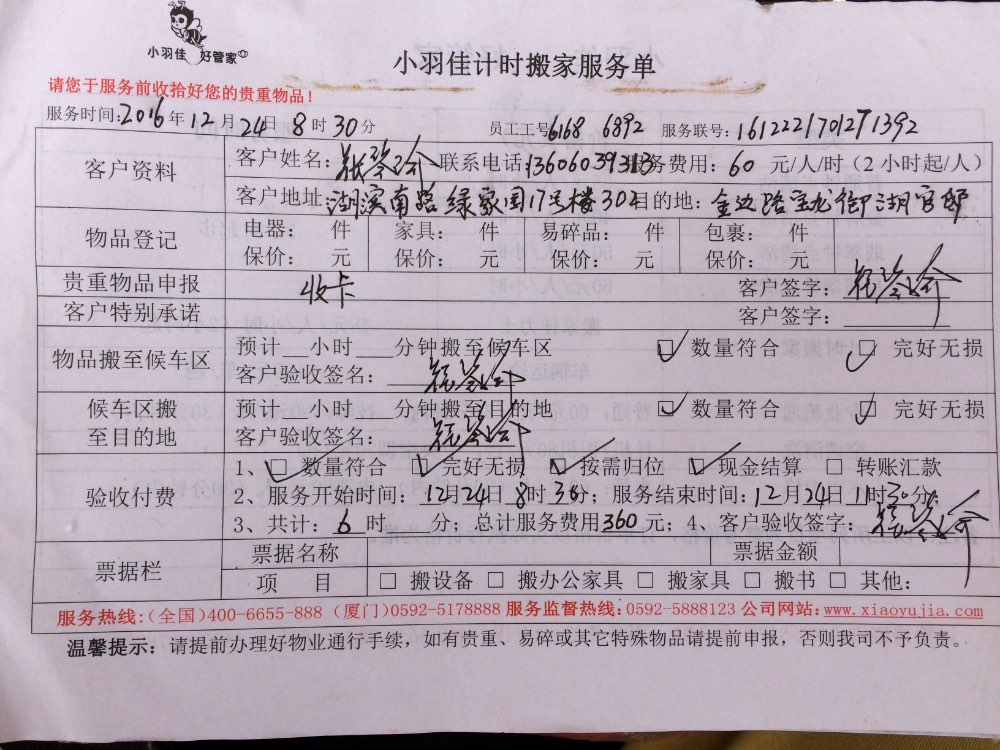 小羽佳 好管家
小羽佳计时搬家服务单
请您于服务前收拾好您的贵重物品！
服务时间:2016年12月24日8时30分 员工工号6168 6892 服务联号:1612221701271392
客户资料
客户姓名: 联系电话:13606039313服务费用: 60 元/人/时（2小时起/人）
客户地址:湖滨南路绿家园17号楼302目的地: 金边路宝龙御湖官邸
物品登记
电器: 件 家具: 件 易碎品: 件 包裹: 件
保价: 元 保价: 元 保价: 元 保价: 元
贵重物品申报 收卡 客户签字:
客户特别承诺 客户签字:
物品搬至候车区
预计__小时___分钟搬至候车区 □ 数量符合 □ 完好无损
客户验收签名:
候车区搬至目的地
预计 小时 分钟搬至目的地 □ 数量符合 □ 完好无损
客户验收签名:
验收付费
1、□ 数量符合 □ 完好无损 □ 按需归位 □ 现金结算 □ 转账汇款
2、服务开始时间: 12月24日8时30分; 服务结束时间: 12月24日11时30分;
3、共计: 6 时 分; 总计服务费用360元; 4、客户验收签字:
票据栏
票据名称 票据金额
项 目 □ 搬设备 □ 搬办公家具 □ 搬家具 □ 搬书 □ 其他:
服务热线:(全国)400-6655-888 (厦门)0592-5178888 服务监督热线:0592-5888123 公司网站:www.xiaoyujia.com
温馨提示: 请提前办理好物业通行手续，如有贵重、易碎或其它特殊物品请提前申报，否则我司不予负责。